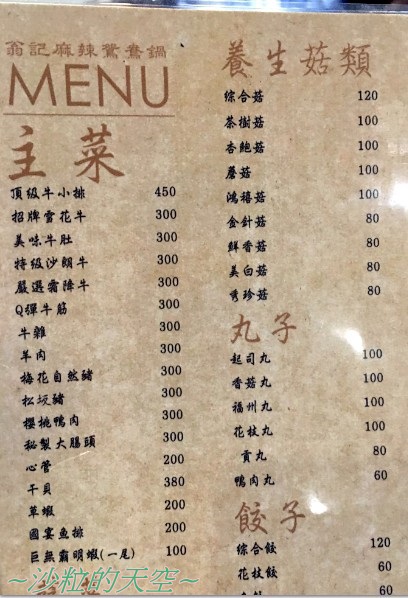 翁記麻辣鴛鴦鍋
MENU
主菜
頂級牛小排 450
招牌雪花牛 300
美味牛肚 300
特級沙朗牛 300
嚴選霜降牛 300
Q彈牛筋 300
牛雜 300
羊肉 300
梅花自然豬 300
松坂豬 300
櫻桃鴨肉 300
秘製大腸頭 300
心管 200
干貝 380
草蝦 200
國宴魚排 200
巨無霸明蝦(一尾) 100
養生菇類
綜合菇 120
茶樹菇 100
杏鮑菇 100
蘑菇 100
鴻禧菇 100
金針菇 80
鮮香菇 80
美白菇 80
秀珍菇 80
丸子
起司丸 100
香菇丸 100
福州丸 100
花枝丸 100
貢丸 80
鴨肉丸 60
餃子
綜合餃 120
花枝餃 60
~沙粒的天空~